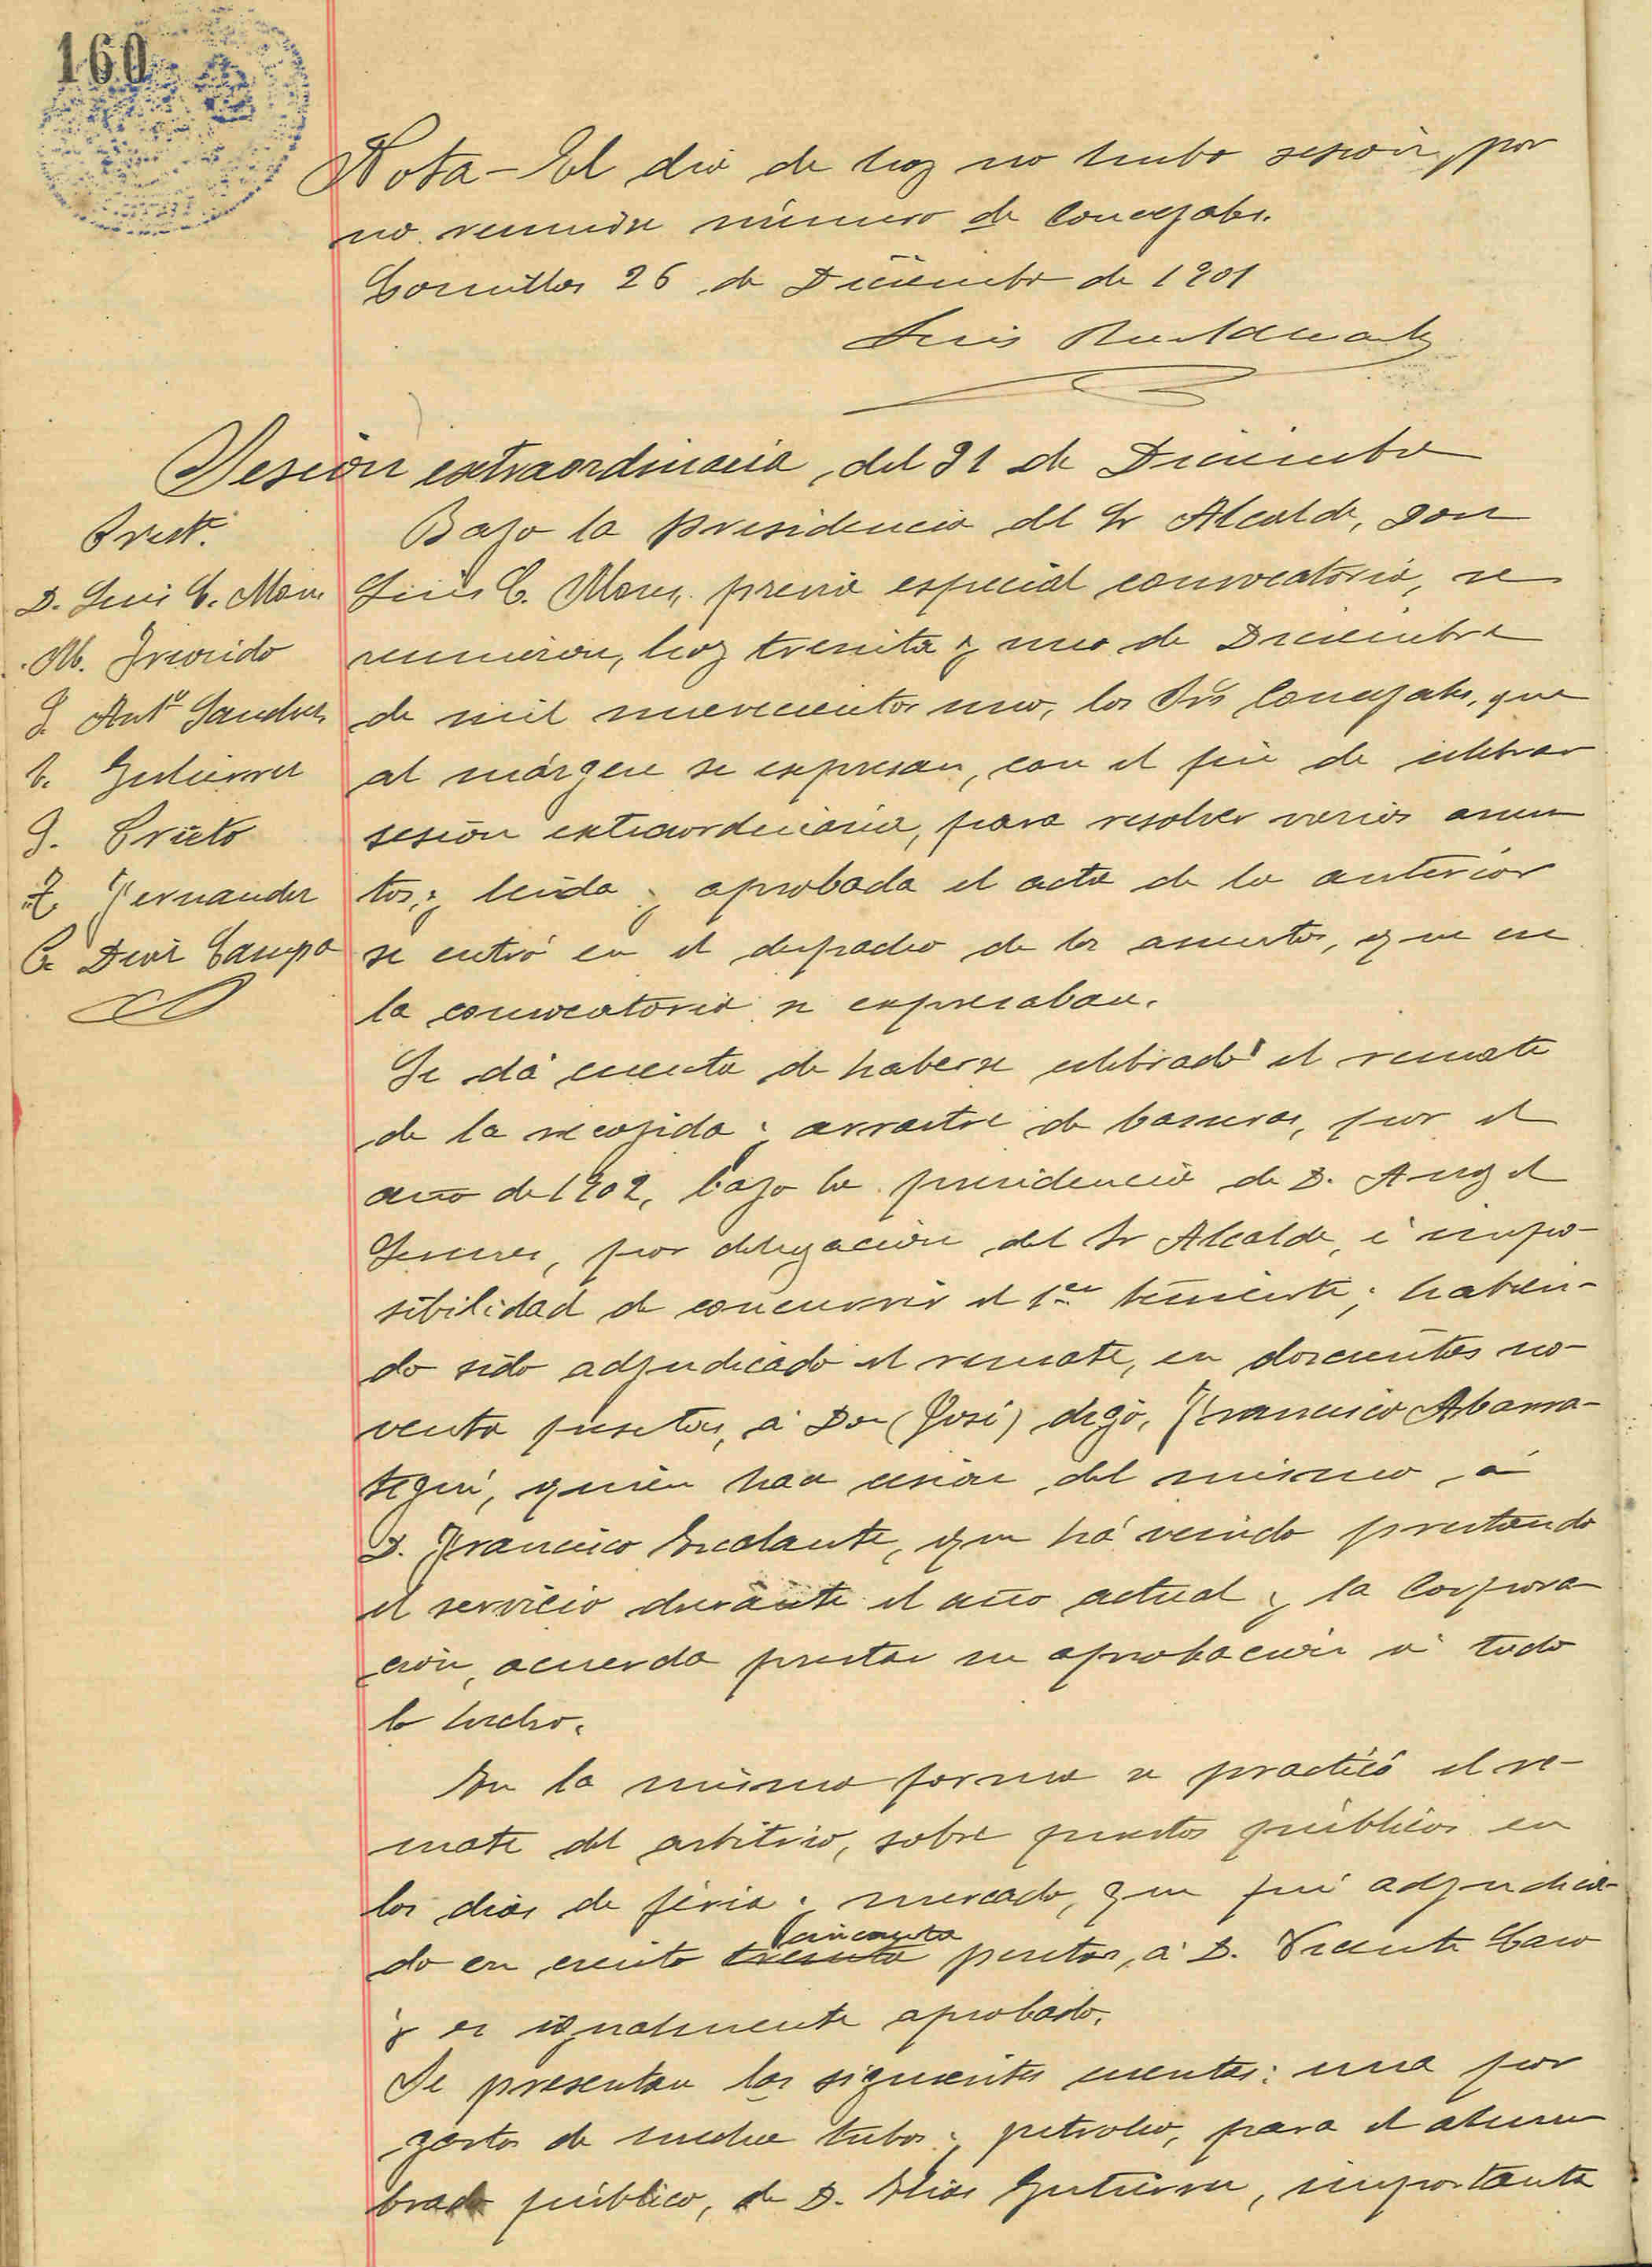 160
Nota - El dia de hoy no hubo sesión, por
no reunirse número de Concejales.
Comillas 26 de Diciembre de 1901
Luis
Sesión extraordinaria, del 31 de Diciembre
Prest.
D. Luis C. Mores
M.
J. Antº Sanchez
C. Gutierrez
J. Prieto
F. Fernandez
C. Diaz Campo
Bajo la presidencia del Sr Alcalde, Don
Luis C. Mores, previa especial convocatoria, se
reunieron, hoy treinta y uno de Diciembre
de mil novecientos uno, los Srs Concejales, que
al márgen se expresan, con el fin de celebrar
sesión extraordinaria, para resolver varios asun
tos, y leida y aprobada el acta de la anterior
se entró en el despacho de los asuntos, que en
la convocatoria se expresaban.
Se dá cuenta de haberse celebrado el remate
de la recojida y arrastre de basuras, por el
año de 1902, bajo la presidencia de D. Angel
por delegación del Sr Alcalde, é impo-
sibilidad de concurrir el 1er teniente; habien-
do sido adjudicado el remate, en doscientas no-
venta pesetas, á Don (José) digo, Francisco Abarra-
tegui, quien hace cesión del mismo, á
D. Francisco Escalante, que há venido prestando
el servicio durante el año actual y la Corpora-
ción, acuerda prestar su aprobación á todo
lo hecho.
En la misma forma se practicó el re-
mate del arbitrio, sobre puestos públicos en
los dias de féria y mercado, que fué adjudica-
do en ciento treinta cincuenta pesetas, á D. Vicente Caro
y es igualmente aprobado.
Se presentan las siguientes cuentas: una por
gastos de mecha tubos y petroleo, para el alum
brado público, de D. Elias Gutierrez, importante